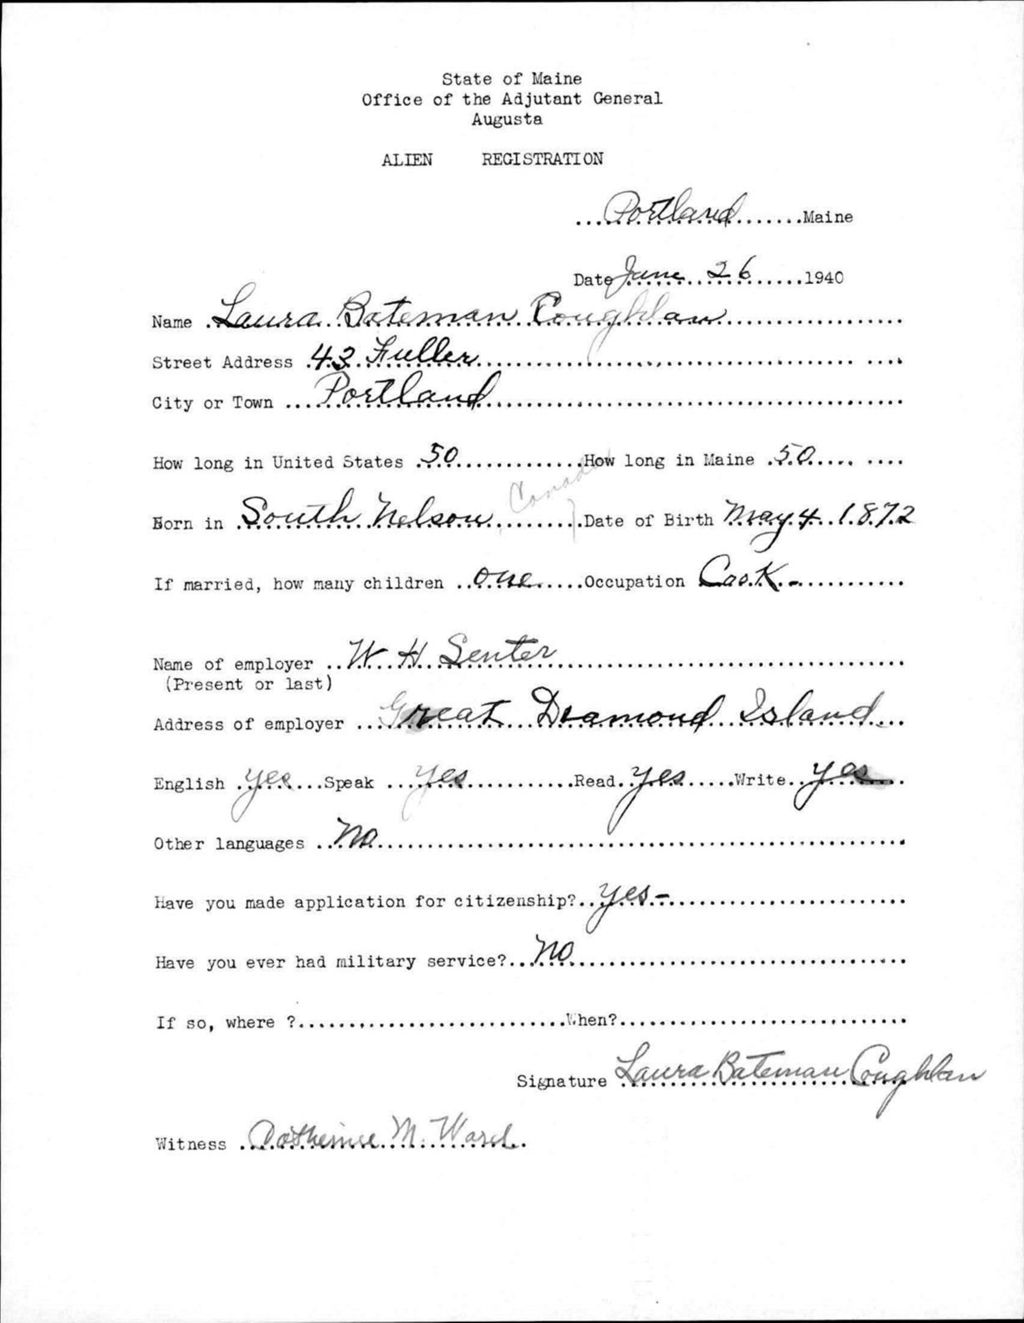 State of Maine
Office of the Adjutant General
Augusta
ALIEN REGISTRATION
Portland Maine
Date June 26 1940
Name Laura Bateman Coughlan
Street Address 43 Fuller
City or Town Portland
How long in United States 50 How long in Maine 50
Canada
Born in South Nelson Date of Birth May 4 1872
If married, how many children one Occupation Cook -
Name of employer W H Senter
(Present or last)
Address of employer Great Diamond Island
English yes Speak yes Read yes Write yes
Other languages no
Have you made application for citizenship? yes -
Have you ever had military service? no
If so, where ? When?
Signature Laura Bateman Coughlan
Witness Catherine M. Ward